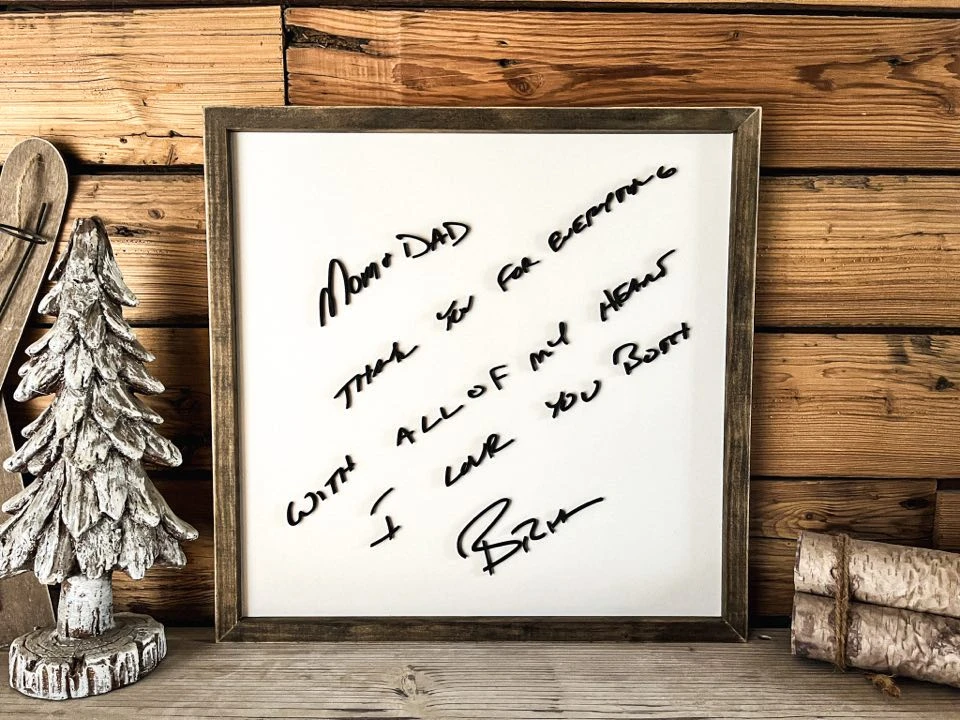 MOM + DAD
THANK YOU FOR EVERYTHING
WITH ALL OF MY HEART
I LOVE YOU BOTH
BRIAN